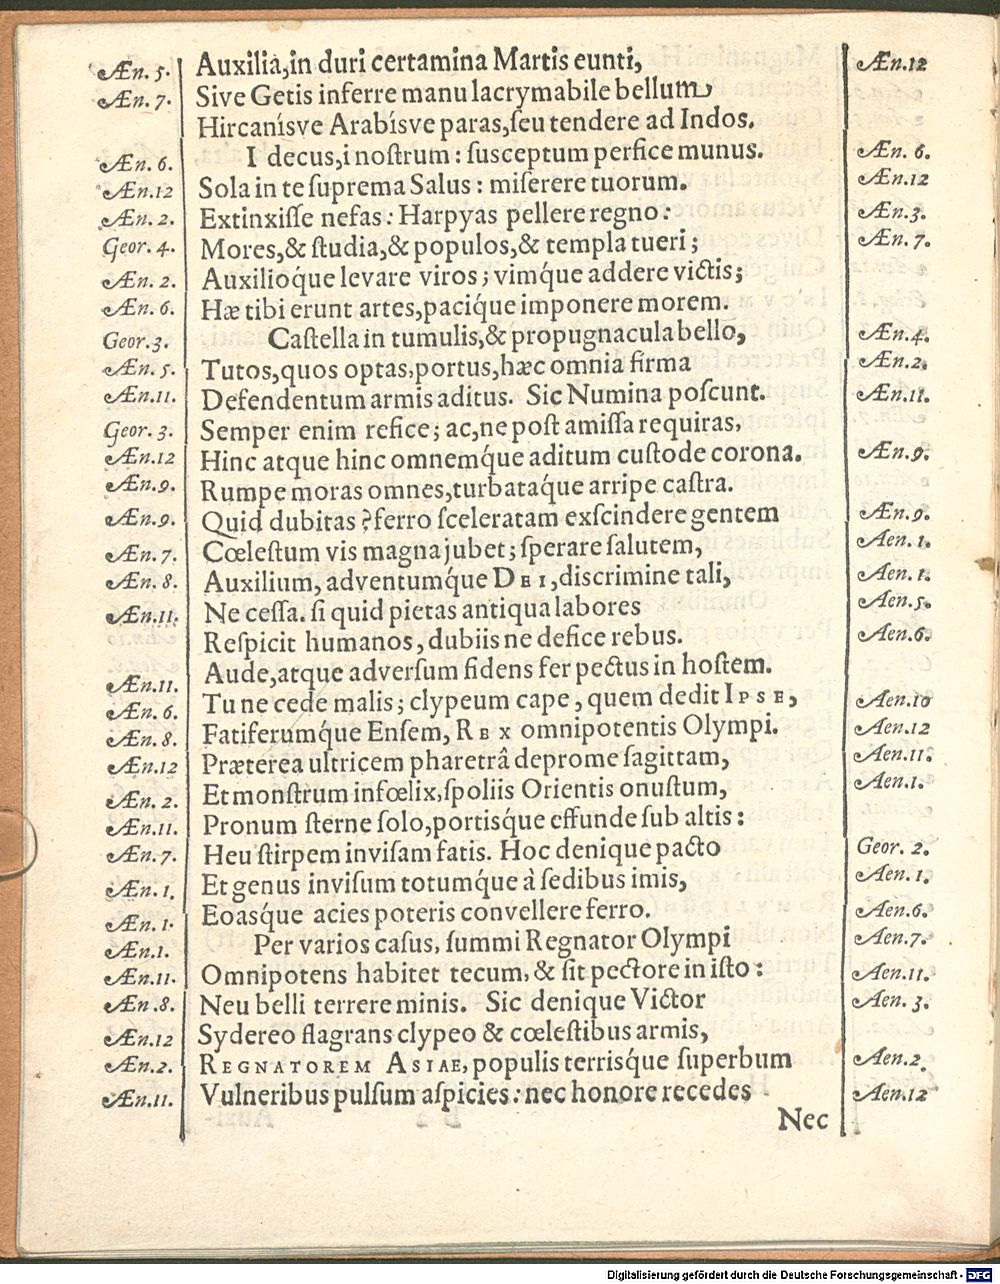 Æn. 5. Auxilia,in duri certamina Martis eunti, Æn.12
Æn. 7. Sive Getis inferre manu lacrymabile bellum
Hircanísve Arabísve paras,ſeu tendere ad Indos.
Æn. 6. I decus,i noſtrum: ſusceptum perfice munus. Æn. 6.
Æn.12 Sola in te ſuprema Salus: miſerere tuorum. Æn.12
Æn. 2. Extinxiſſe nefas: Harpyas pellere regno: Æn.3.
Geor. 4. Mores,& ſtudia,& populos,& templa tueri; Æn. 7.
Æn. 2. Auxilioq́ue levare viros; vimq́ue addere victis;
Æn. 6. Hæ tibi erunt artes,paciq́ue imponere morem.
Geor.3. Caſtella in tumulis,& propugnacula bello, Æn.4.
Æn. 5. Tutos,quos optas,portus,hæc omnia firma Æn.2.
Æn.11. Defendentum armis aditus. Sic Numina poſcunt. Æn.11.
Geor. 3. Semper enim refice; ac,ne poſt amiſſa requiras,
Æn.12 Hinc atque hinc omnemq́ue aditum cuſtode corona. Æn.9.
Æn.9. Rumpe moras omnes,turbataq́ue arripe caſtra.
Æn.9. Quid dubitas ?ferro ſceleratam exſcindere gentem Æn.9.
Æn. 7. Cœleſtum vis magna jubet; ſperare ſalutem, Aen. 1.
Æn. 8. Auxilium, adventumq́ue DEI,discrimine tali, Aen. 1.
Æn.11. Ne ceſſa. ſi quid pietas antiqua labores Aen.5.
Reſpicit humanos, dubiis ne defice rebus. Aen.6.
Æn.11. Aude,atque adverſum fidens fer pectus in hoſtem.
Æn. 6. Tu ne cede malis; clypeum cape, quem dedit IPSE, Aen.10
Æn. 8. Fatiferumq́ue Enſem, REX omnipotentis Olympi. Aen.12
Æn.12 Præterea ultricem pharetrâ deprome ſagittam, Aen.11.
Æn. 2. Et monſtrum infœlix,ſpoliis Orientis onuſtum, Aen.1.
Æn.11. Pronum ſterne ſolo,portisq́ue effunde ſub altis:
Æn.7. Heu ſtirpem inviſam fatis. Hoc denique pacto Geor. 2.
Æn. 1. Et genus inviſum totumq́ue à ſedibus imis, Aen. 1.
Æn. 1. Eoasq́ue acies poteris convellere ferro. Aen.6.
Æn.1. Per varios caſus, ſummi Regnator Olympi Aen.7.
Æn.11. Omnipotens habitet tecum, & ſit pectore in iſto: Aen.11.
Æn .8. Neu belli terrere minis. Sic denique Victor Aen. 3.
Æn.12 Sydereo flagrans clypeo & cœleſtibus armis,
Æn.2. REGNATOREM ASIAE,populis terrisq́ue ſuperbum Aen.2.
Æn.11. Vulneribus pulſum aſpicies: nec honore recedes Aen.12
Nec
Digitalisierung gefördert durch die Deutsche Forschungsgemeinschaft - DFG